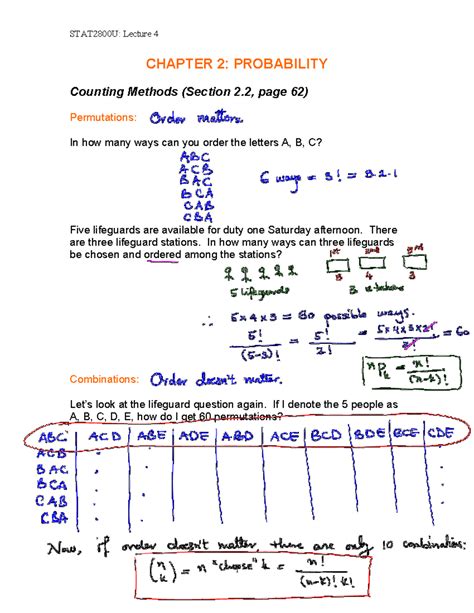 STAT2800U: Lecture 4
CHAPTER 2: PROBABILITY
Counting Methods (Section 2.2, page 62)
Permutations: Order matters.
In how many ways can you order the letters A, B, C?
ABC
ACB
BAC
BCA
CAB
CBA
6 ways = 3! = 3·2·1
Five lifeguards are available for duty one Saturday afternoon. There
are three lifeguard stations. In how many ways can three lifeguards
be chosen and ordered among the stations?
1st 2nd 3rd
5 4 3
5 lifeguards 3 stations
∴ 5×4×3 = 60 possible ways.
5!/(5-3)! = 5!/2! = 5×4×3×2!/2! = 60
nPk = n!/(n-k)!
Combinations: Order doesn't matter.
Let's look at the lifeguard question again. If I denote the 5 people as
A, B, C, D, E, how do I get 60 permutations?
ABC | ACD | ABE | ADE | ABD | ACE | BCD | BDE | BCE | CDE
ACB
BAC
BCA
CAB
CBA
Now, if order doesn't matter, there are only 10 combinations:
(n k) = n "choose" k = n!/(n-k)! k!